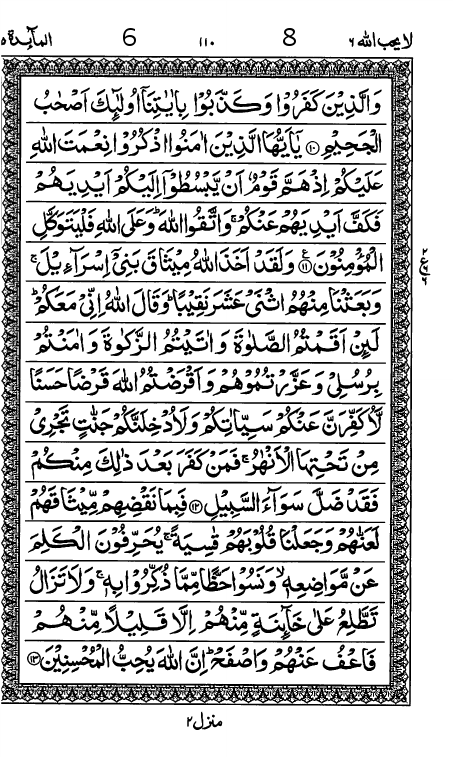 لا يحب الله ٦ 8 ١١٠ 6 المآىِٕدة ٥
وَالَّذِيْنَ كَفَرُوْا وَكَذَّبُوْا بِاٰيٰتِنَاۤ اُولٰٓىِٕكَ اَصْحٰبُ
الْجَحِيْمِ ﴿۱۰﴾ يٰۤاَيُّهَا الَّذِيْنَ اٰمَنُوا اذْكُرُوْا نِعْمَتَ اللّٰهِ
عَلَيْكُمْ اِذْ هَمَّ قَوْمٌ اَنْ يَّبْسُطُوْۤا اِلَيْكُمْ اَيْدِيَهُمْ
فَكَفَّ اَيْدِيَهُمْ عَنْكُمْ ۚ وَاتَّقُوا اللّٰهَ ؕ وَعَلَى اللّٰهِ فَلْيَتَوَكَّلِ
الْمُؤْمِنُوْنَ ﴿۱۱﴾ ع وَلَقَدْ اَخَذَ اللّٰهُ مِيْثَاقَ بَنِيْۤ اِسْرَآءِيْلَ ۚ
وَبَعَثْنَا مِنْهُمُ اثْنَيْ عَشَرَ نَقِيْبًا ؕ وَقَالَ اللّٰهُ اِنِّيْ مَعَكُمْ ؕ
لَىِٕنْ اَقَمْتُمُ الصَّلٰوةَ وَاٰتَيْتُمُ الزَّكٰوةَ وَاٰمَنْتُمْ
بِرُسُلِيْ وَعَزَّرْتُمُوْهُمْ وَاَقْرَضْتُمُ اللّٰهَ قَرْضًا حَسَنًا
لَّاُكَفِّرَنَّ عَنْكُمْ سَيِّاٰتِكُمْ وَلَاُدْخِلَنَّكُمْ جَنّٰتٍ تَجْرِيْ
مِنْ تَحْتِهَا الْاَنْهٰرُ ۚ فَمَنْ كَفَرَ بَعْدَ ذٰلِكَ مِنْكُمْ
فَقَدْ ضَلَّ سَوَآءَ السَّبِيْلِ ﴿۱۲﴾ فَبِمَا نَقْضِهِمْ مِّيْثَاقَهُمْ
لَعَنّٰهُمْ وَجَعَلْنَا قُلُوْبَهُمْ قٰسِيَةً ۚ يُحَرِّفُوْنَ الْكَلِمَ
عَنْ مَّوَاضِعِهٖ ۙ وَنَسُوْا حَظًّا مِّمَّا ذُكِّرُوْا بِهٖ ۚ وَلَا تَزَالُ
تَطَّلِعُ عَلٰى خَآىِٕنَةٍ مِّنْهُمْ اِلَّا قَلِيْلًا مِّنْهُمْ
فَاعْفُ عَنْهُمْ وَاصْفَحْ ؕ اِنَّ اللّٰهَ يُحِبُّ الْمُحْسِنِيْنَ ﴿۱۳﴾
منزل ٢